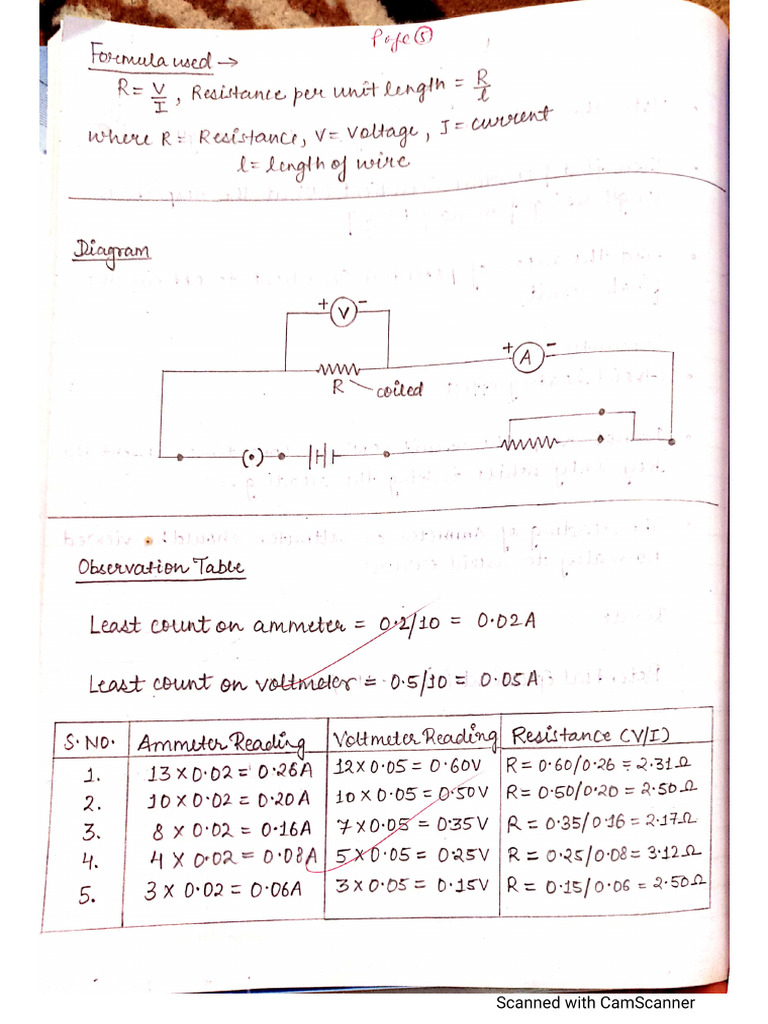 Page 5
Formula used →
R = V/I , Resistance per unit length = R/l
where R = Resistance, V = Voltage, I = current
l = length of wire
Diagram
+ V -
+ A -
R coiled
(•)
Observation Table
Least count on ammeter = 0.2/10 = 0.02A
Least count on voltmeter = 0.5/10 = 0.05A
S.NO. Ammeter Reading Voltmeter Reading Resistance (V/I)
1. 13 x 0.02 = 0.26A 12 x 0.05 = 0.60V R = 0.60/0.26 = 2.31Ω
2. 10 x 0.02 = 0.20A 10 x 0.05 = 0.50V R = 0.50/0.20 = 2.50Ω
3. 8 x 0.02 = 0.16A 7 x 0.05 = 0.35V R = 0.35/0.16 = 2.17Ω
4. 4 x 0.02 = 0.08A 5 x 0.05 = 0.25V R = 0.25/0.08 = 3.12Ω
5. 3 x 0.02 = 0.06A 3 x 0.05 = 0.15V R = 0.15/0.06 = 2.50Ω
Scanned with CamScanner